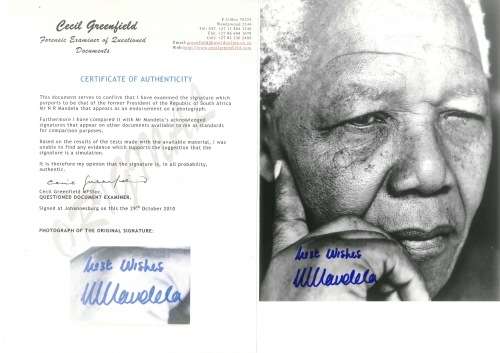 Cecil Greenfield
Forensic Examiner of Questioned
Documents
CERTIFICATE OF AUTHENTICITY
This document serves to confirm that I have examined the signature which
purports to be that of the former President of the Republic of South Africa
Mr N R Mandela that appears as an endorsement on a
photograph.
Furthermore I have compared it with Mr Mandela's acknowledged
signatures that appear on other documents available to me as standards
for comparison purposes.
Based on the results of the tests made with the available material, I was
unable to find any evidence which supports the suggestion that the
signature is a simulation.
It is therefore my opinion that the signature is, in all probability,
authentic.
Cecil Greenfield
QUESTIONED DOCUMENT EXAMINER.
Signed at Johannesburg on this the 29th October 2010
PHOTOGRAPH OF THE ORIGINAL SIGNATURE:
Best Wishes
NMandela
Best Wishes
NMandela